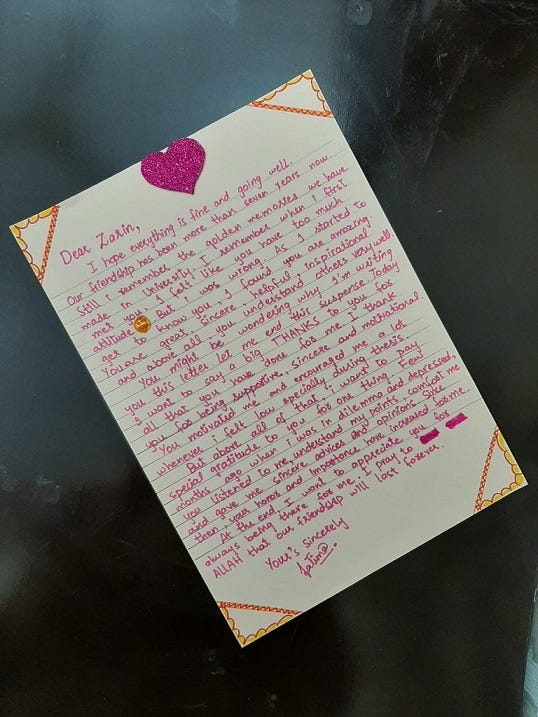 Dear Zarin,
I hope everything is fine and going well.
Our friendship has been more than seven years now.
Still i remember the golden memories we have
made in University. I remember when i first
met you, I felt like you have too much
attitude But i was wrong. As I started to
get to know you, I found you are amazing.
You are great, sincere, helpful, inspirational
and above all you understand others very well
You might be wondering why I'm writing
you this letter let me end this suspense. Today
I want to say a big THANKS to you for
all that you have done for me. I thank
you for being supportive, sincere and motivational.
You motivated me and encouraged me a lot
whenever i felt low specially during thesis.
But above all of that i want to pay
special gratitude to you for one thing. Few
months ago when i was in dilemma and depressed,
you listened to me, understand my points, comfort me
and gave me sincere advices and opinions. Since
then, your honor and importance have increased for me.
At the end I want to appreciate you for
always being there for me. I pray to
ALLAH that our friendship will last forever.
Your's sincerely